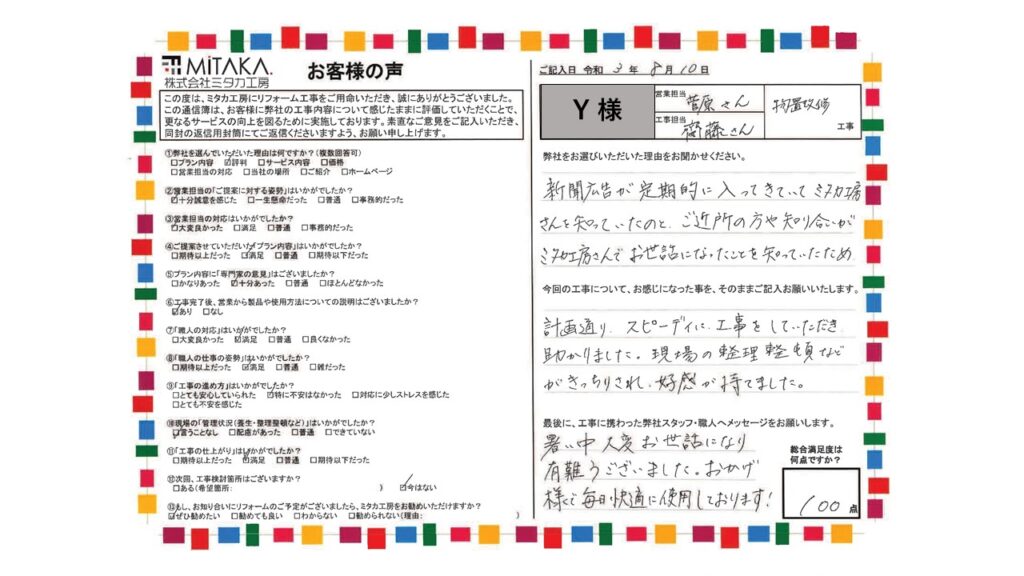 MiTAKA.
株式会社ミタカ工房
お客様の声
この度は、ミタカ工房にリフォーム工事をご用命いただき、誠にありがとうございました。
この通信簿は、お客様に弊社の工事内容について感じたままに評価していただくことで、
更なるサービスの向上を図るために実施しております。素直なご意見をご記入いただき、
同封の返信用封筒にてご返信くださいますよう、お願い申し上げます。
①弊社を選んでいただいた理由は何ですか?(複数回答可)
□プラン内容 ☑評判 □サービス内容 □価格
□営業担当の対応 □当社の場所 □ご紹介 □ホームページ
②営業担当の「ご提案に対する姿勢」はいかがでしたか?
☑十分誠意を感じた □一生懸命だった □普通 □事務的だった
③営業担当の対応はいかがでしたか?
☑大変良かった □満足 □普通 □事務的だった
④ご提案させていただいた「プラン内容」はいかがでしたか?
□期待以上だった ☑満足 □普通 □期待以下だった
⑤プラン内容に「専門家の意見」はございましたか?
□かなりあった ☑十分あった □普通 □ほとんどなかった
⑥工事完了後、営業から製品や使用方法についての説明はございましたか?
☑あり □なし
⑦「職人の対応」はいかがでしたか?
□大変良かった ☑満足 □普通 □良くなかった
⑧「職人の仕事の姿勢」はいかがでしたか?
□期待以上だった ☑満足 □普通 □雑だった
⑨「工事の進め方」はいかがでしたか?
□とても安心していられた ☑特に不安はなかった □対応に少しストレスを感じた
□とても不安を感じた
⑩現場の「管理状況(養生・整理整頓など)」はいかがでしたか?
☑言うことなし □配慮があった □普通 □できていない
⑪「工事の仕上がり」はいかがでしたか?
□期待以上だった ☑満足 □普通 □期待以下だった
⑫次回、工事検討箇所はございますか?
□ある(希望箇所: ) ☑今はない
⑬もし、お知り合いにリフォームのご予定がございましたら、ミタカ工房をお勧めいただけますか?
☑ぜひ勧めたい □勧めても良い □わからない □勧められない(理由: )
ご記入日 令和 3 年 8 月 10 日
Y 様
営業担当 菅原さん
工事担当 齋藤さん
物置改修 工事
弊社をお選びいただいた理由をお聞かせください。
新聞広告が定期的に入ってきていてミタカ工房
さんを知っていたのと、ご近所の方や知り合いが
ミタカ工房さんでお世話になったことを知っていたため
今回の工事について、お感じになった事を、そのままご記入お願いいたします。
計画通り、スピーディに工事をしていただき
助かりました。現場の整理整頓など
がきっちりされ、好感が持てました。
最後に、工事に携わった弊社スタッフ・職人へメッセージをお願いします。
暑い中大変お世話になり
有難うございました。おかげ
様で毎日快適に使用しております!
総合満足度は
何点ですか?
100 点